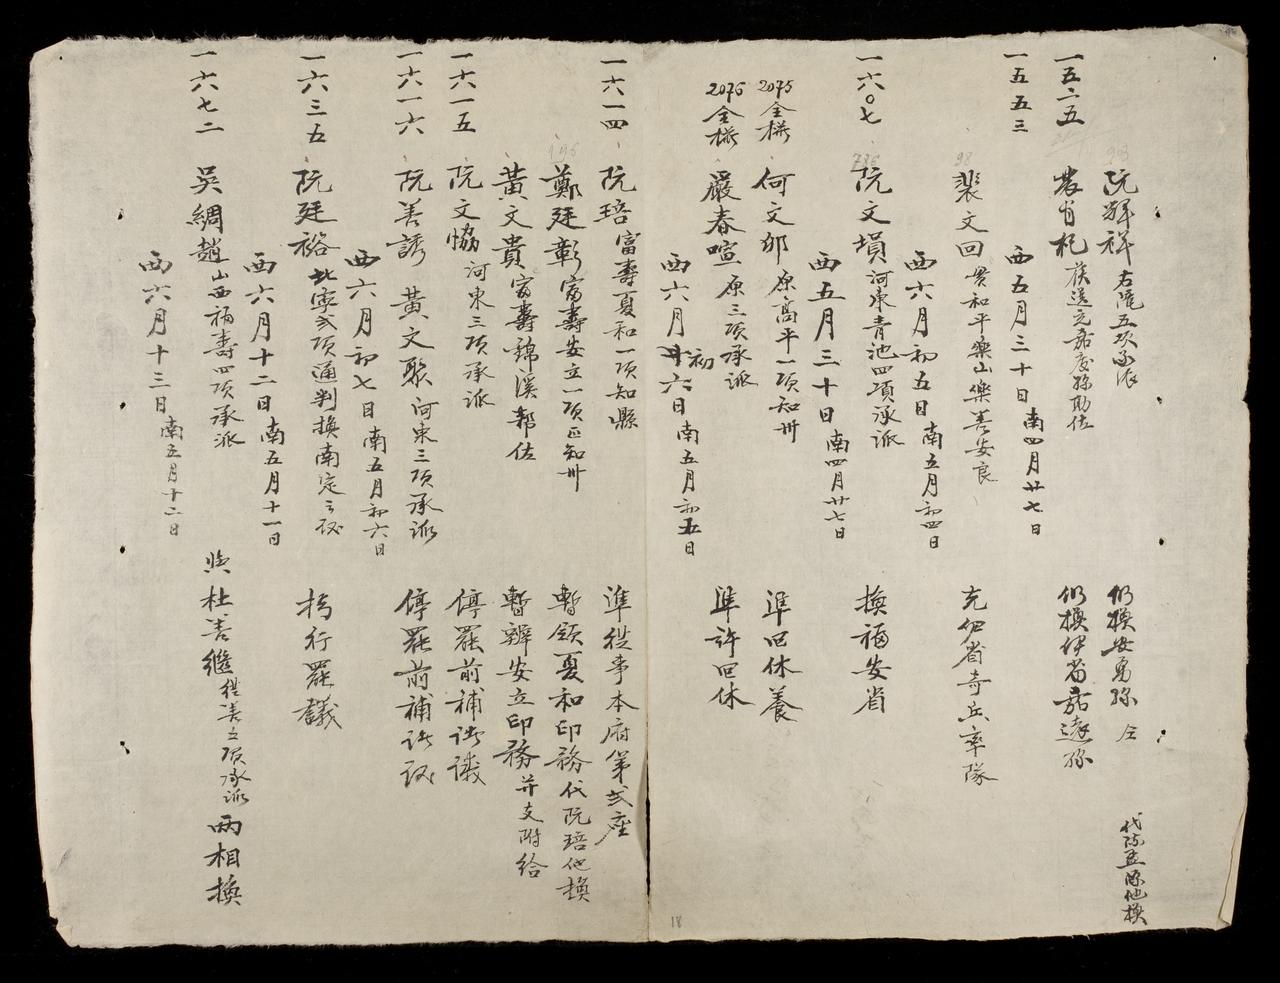 阮輝祥 右隴五項承派 仍換安勇縣 仝 代阮孟縣他換
一五二五 農省札 族送元嘉慶縣助佐 仍換伊省嘉遠縣
西五月三十日 南四月廿七日
一五五三
裴文回 貫和平樂山樂善安良 充伊省奇兵率隊
西六月初五日 南五月初四日
一六〇七 阮文塤 河東青池四項承派 換福安省
西五月三十日 南四月廿七日
2075 仝樣 何文邨 原高平一項知州 準回休養
2076 仝樣 嚴春喧 原三項承派 準許回休
西六月初六日 南五月初五日
一六一四 阮琣 富壽夏和一項知縣 準從事本府第弍座
鄭廷彰 富壽安立一項正知州 暫領夏和印務代阮琣他換
黃文貴 富壽錦溪幫佐 暫辨安立印務并支附給
一六一五 阮文恊 河東三項承派 停罷前補議
一六一六 阮善誘 黃文聚 河東三項承派 停罷前補議
西六月初七日 南五月初六日
一六三五 阮廷裕 北寧弍項通判換南定之議 撝行罷議
西六月十二日 南五月十一日
一六七二 吳綢趙 山西福壽四項承派 與杜善繼 從善五項承派 兩相換
西六月十三日 南五月十二日
18